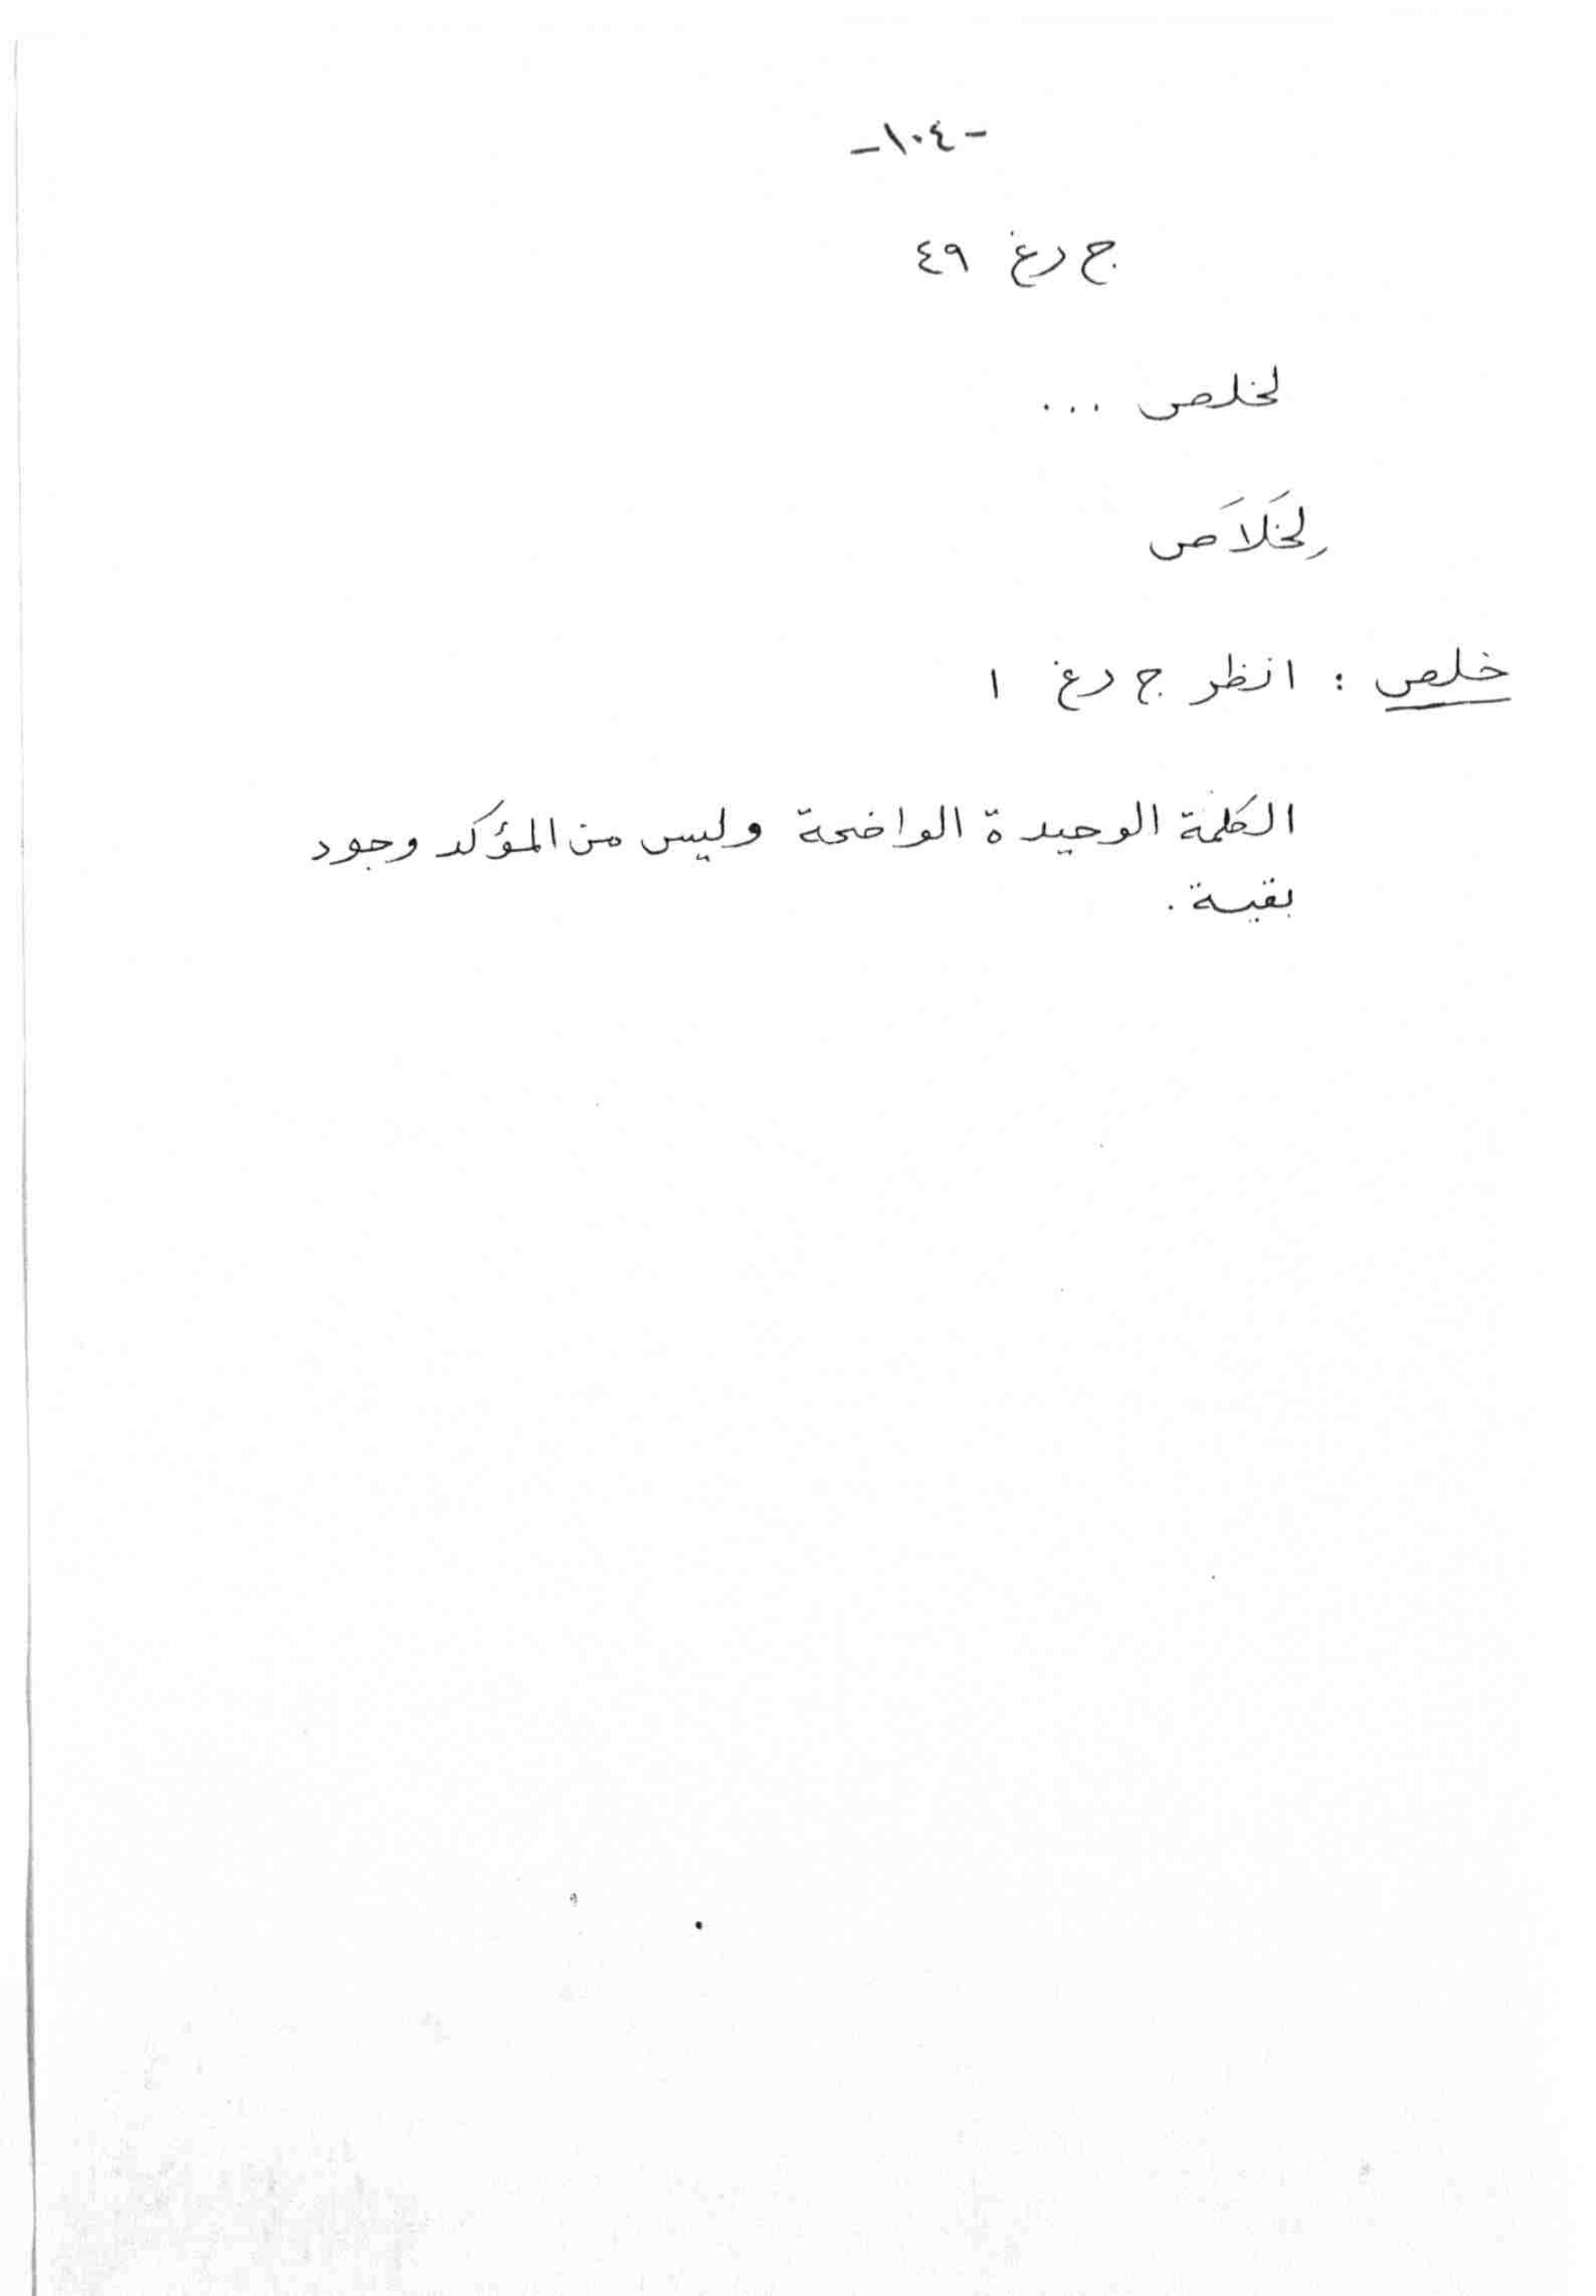 -١٠٤-
ج رغ ٤٩
لخلص ...
لِخَلاَص
خلص : انظر ج رغ ١
الكلمة الوحيدة الواضحة وليس من المؤكد وجود
بقية .